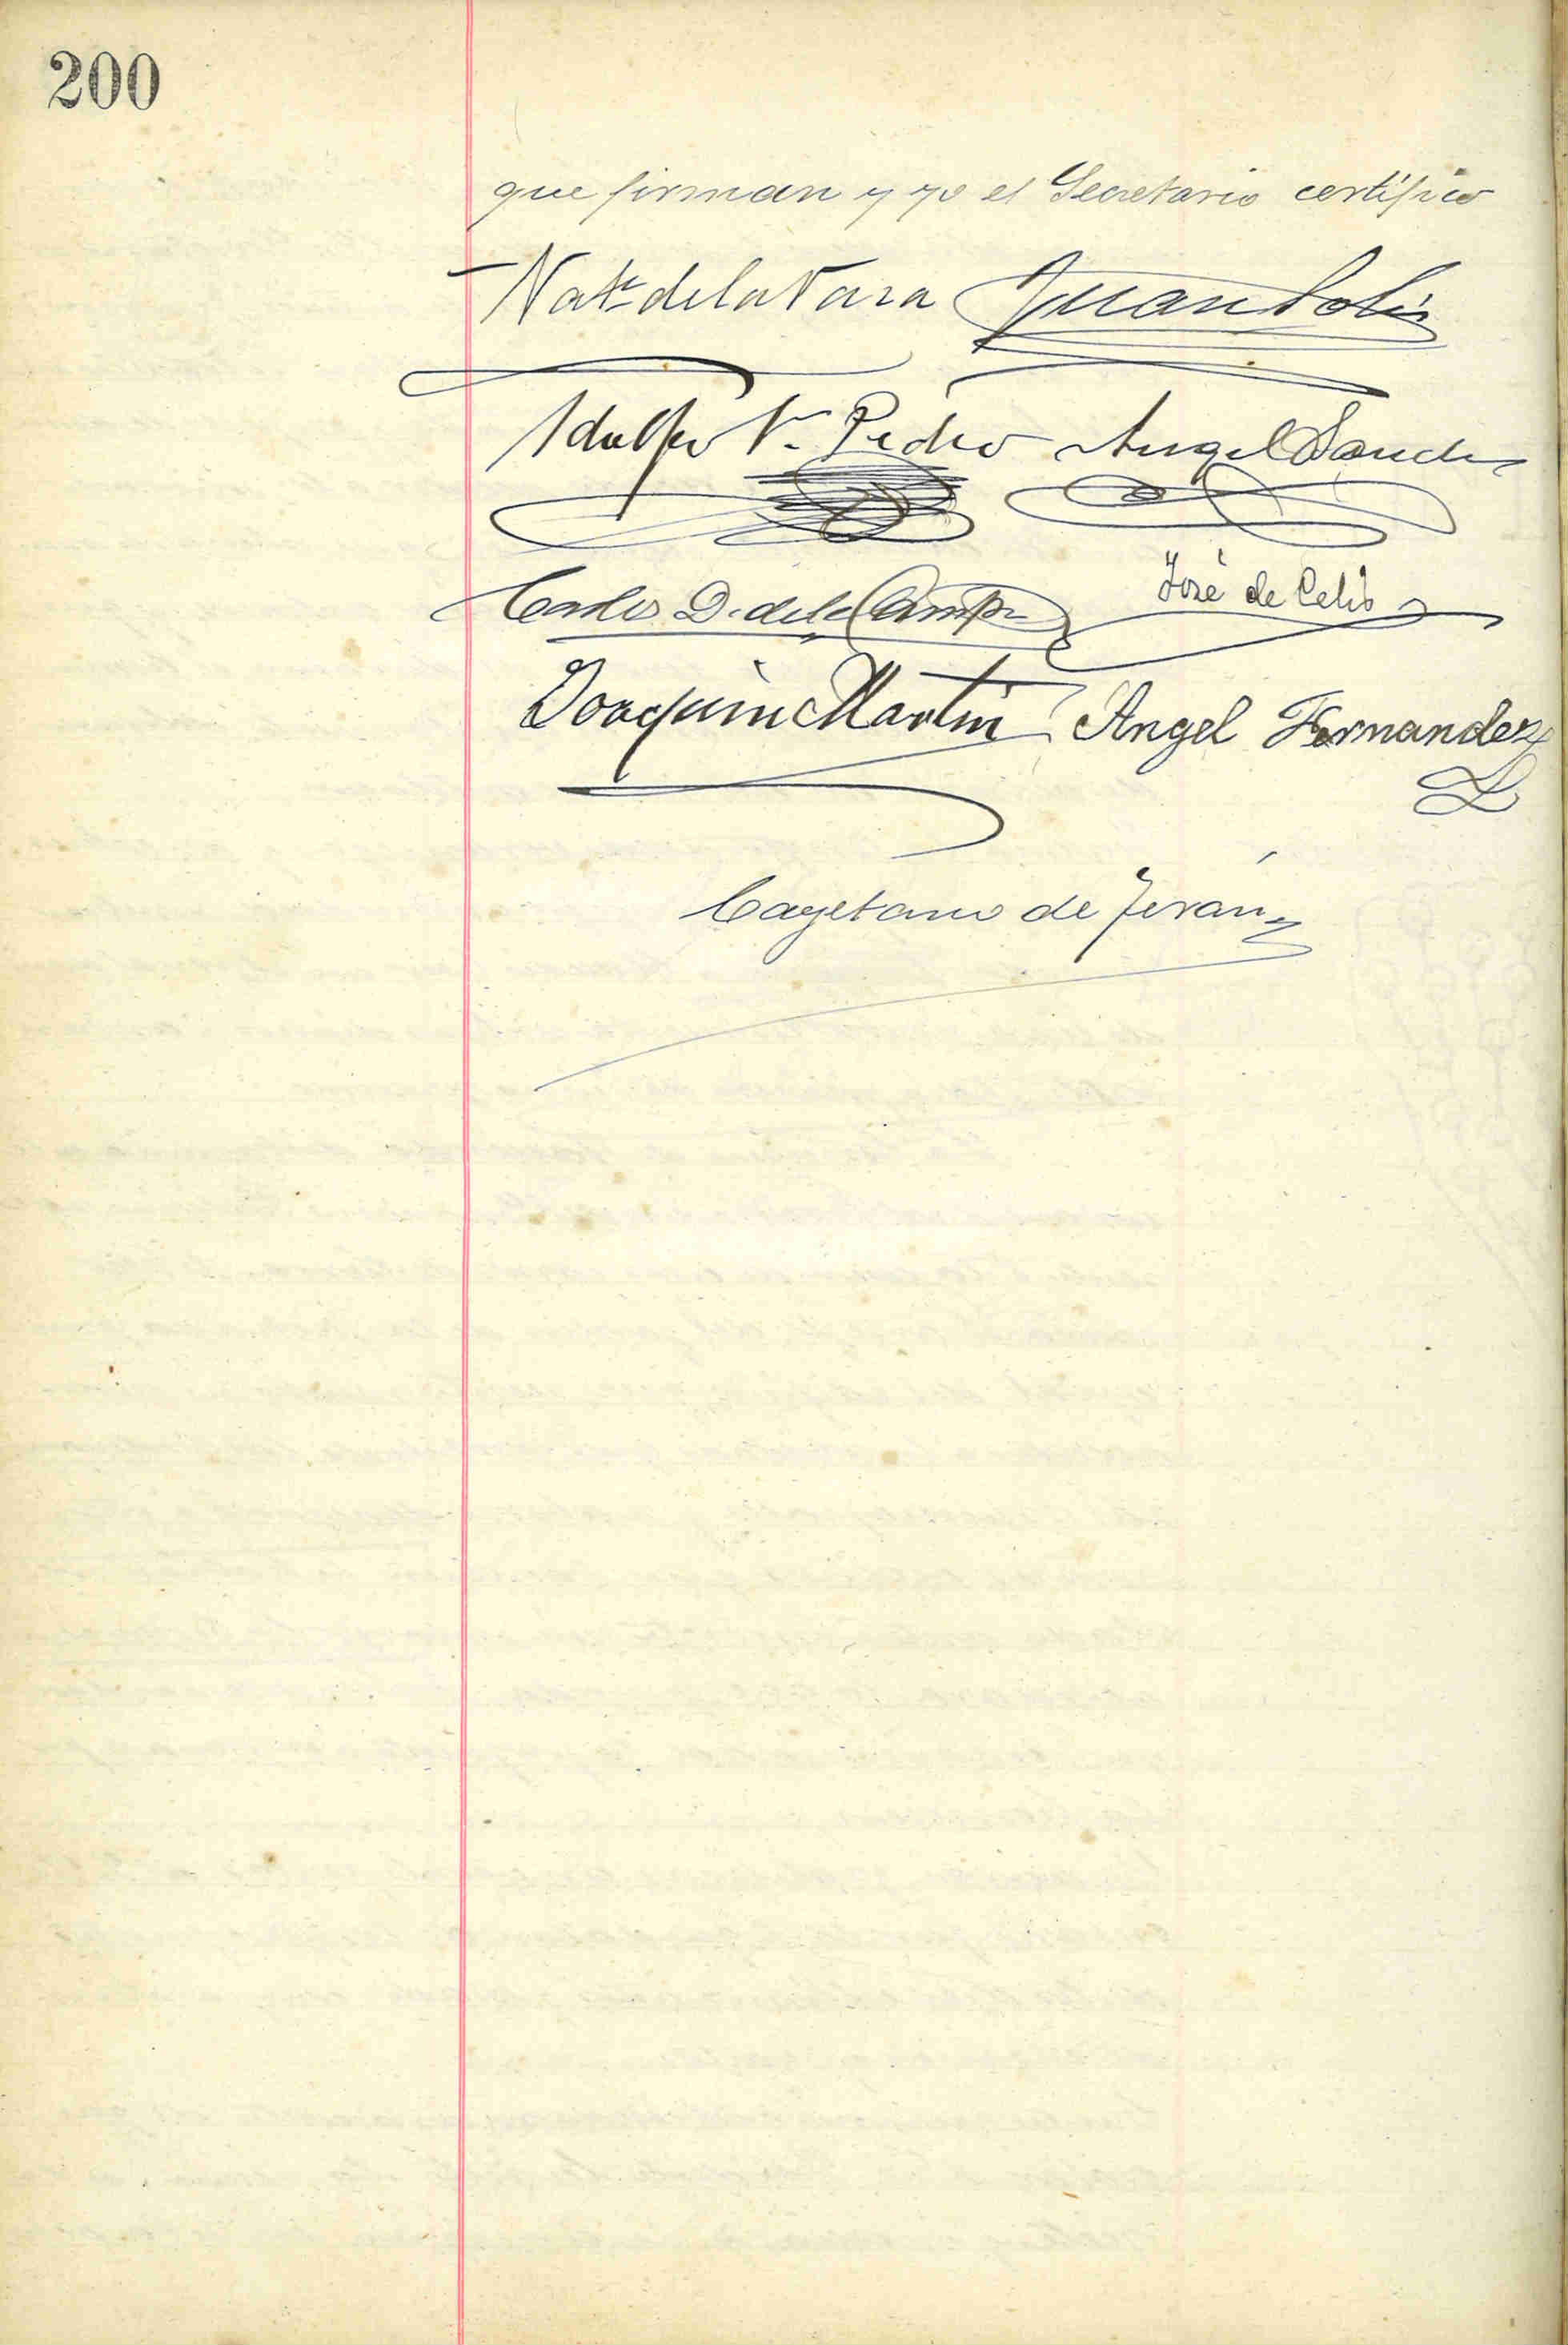 200
que firman y yo el Secretario certifico
Nat. de la Vara Juan Solís
Adolfo V. Pedro Angel Sanchez
Carlos D. de la Campa José de Celis
Joaquin Martin Angel Fernandez
Cayetano de Terán